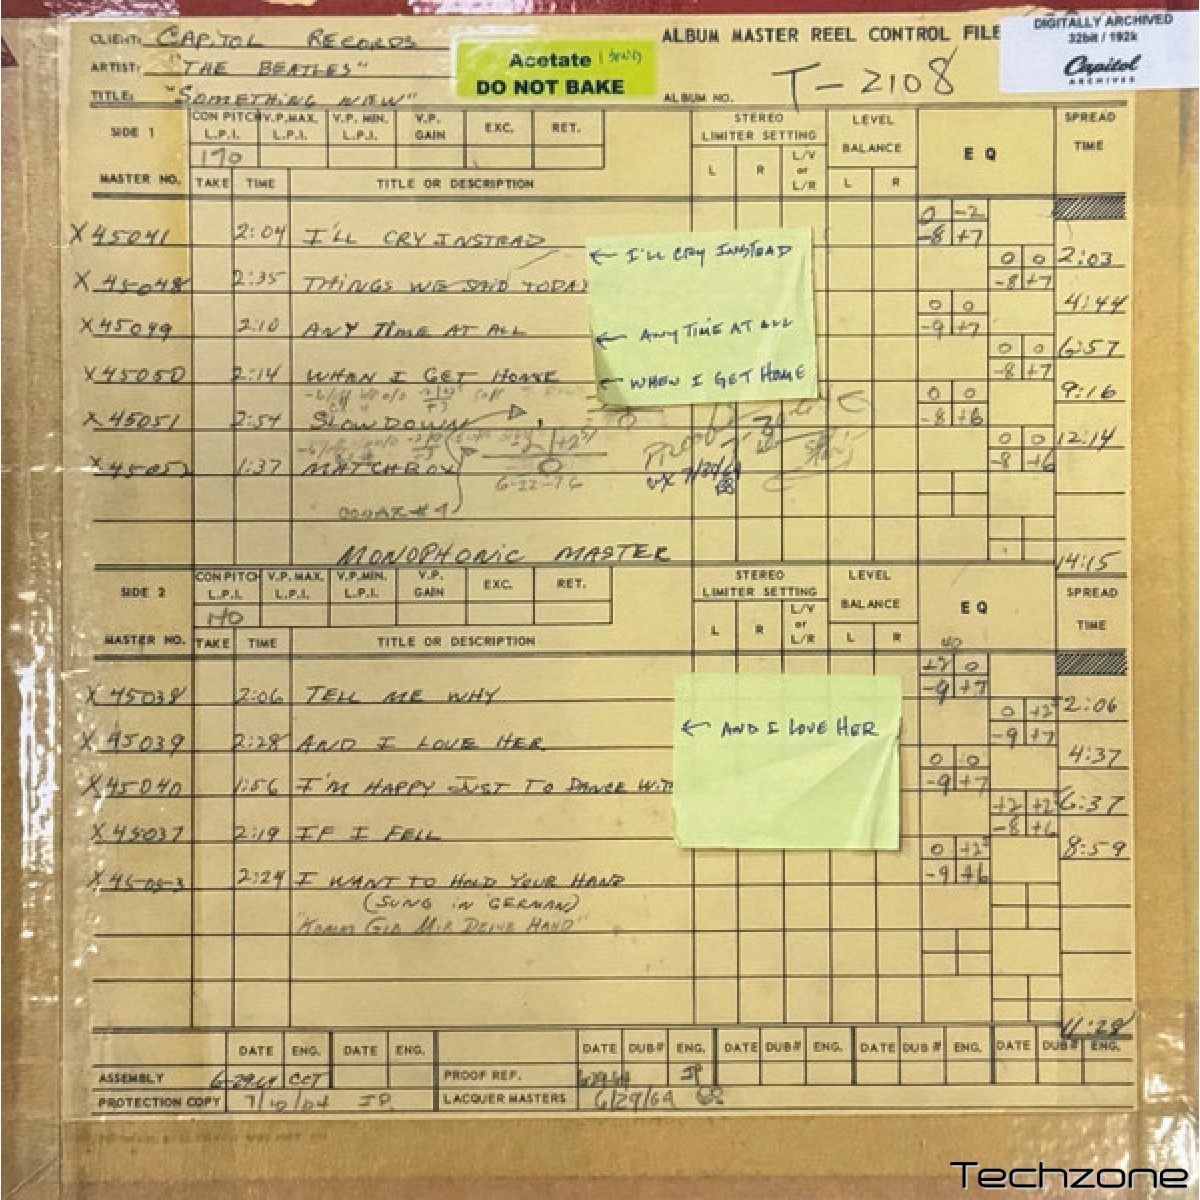 CLIENT: CAPITOL RECORDS
ALBUM MASTER REEL CONTROL FILE
DIGITALLY ARCHIVED
32bit / 192k
Capitol
ARCHIVES
ARTIST: "THE BEATLES"
Acetate
DO NOT BAKE
TITLE: "SOMETHING NEW"
ALBUM NO. T-2108
SIDE 1 CON PITCH L.P.I. V.P.MAX. L.P.I. V.P. MIN. L.P.I. V.P. GAIN EXC. RET. STEREO LIMITER SETTING LEVEL BALANCE E Q SPREAD TIME
170
L R L/V or L/R L R
MASTER NO. TAKE TIME TITLE OR DESCRIPTION
0 -2
X 45041 2:04 I'LL CRY INSTEAD -8 +7
← I'LL CRY INSTEAD 0 0 2:03
X 45048 2:35 THINGS WE SAID TODAY -8 +7
0 0 4:44
X 45049 2:10 ANY TIME AT ALL ← ANY TIME AT ALL -9 +7
0 0 6:57
X 45050 2:14 WHEN I GET HOME ← WHEN I GET HOME -8 +7
0 0 9:16
X 45051 2:54 SLOW DOWN -8 +6
0 0 12:14
X 45052 1:37 MATCHBOX -8 +6
6-22-76
MONOPHONIC MASTER
14:15
SIDE 2 CON PITCH L.P.I. V.P. MAX. L.P.I. V.P.MIN. L.P.I. V.P. GAIN EXC. RET. STEREO LIMITER SETTING LEVEL BALANCE E Q SPREAD TIME
L R L/V or L/R L R
MASTER NO. TAKE TIME TITLE OR DESCRIPTION
+2 0
X 45038 2:06 TELL ME WHY -9 +7
0 +2 2:06
X 45039 2:28 AND I LOVE HER ← AND I LOVE HER -9 +7
0 0 4:37
X 45040 1:56 I'M HAPPY JUST TO DANCE WITH -9 +7
+2 +2 6:37
X 45037 2:19 IF I FELL -8 +6
0 +2 8:59
X 45053 2:24 I WANT TO HOLD YOUR HAND -9 +6
(SUNG IN GERMAN)
"KOMM GIB MIR DEINE HAND"
11:28
DATE ENG. DATE ENG. DATE DUB# ENG. DATE DUB# ENG. DATE DUB# ENG. DATE DUB# ENG.
ASSEMBLY 6-29-64 CCT PROOF REF. 6-29-64 JP
PROTECTION COPY 7/10/64 JP. LACQUER MASTERS 6/29/64
Techzone